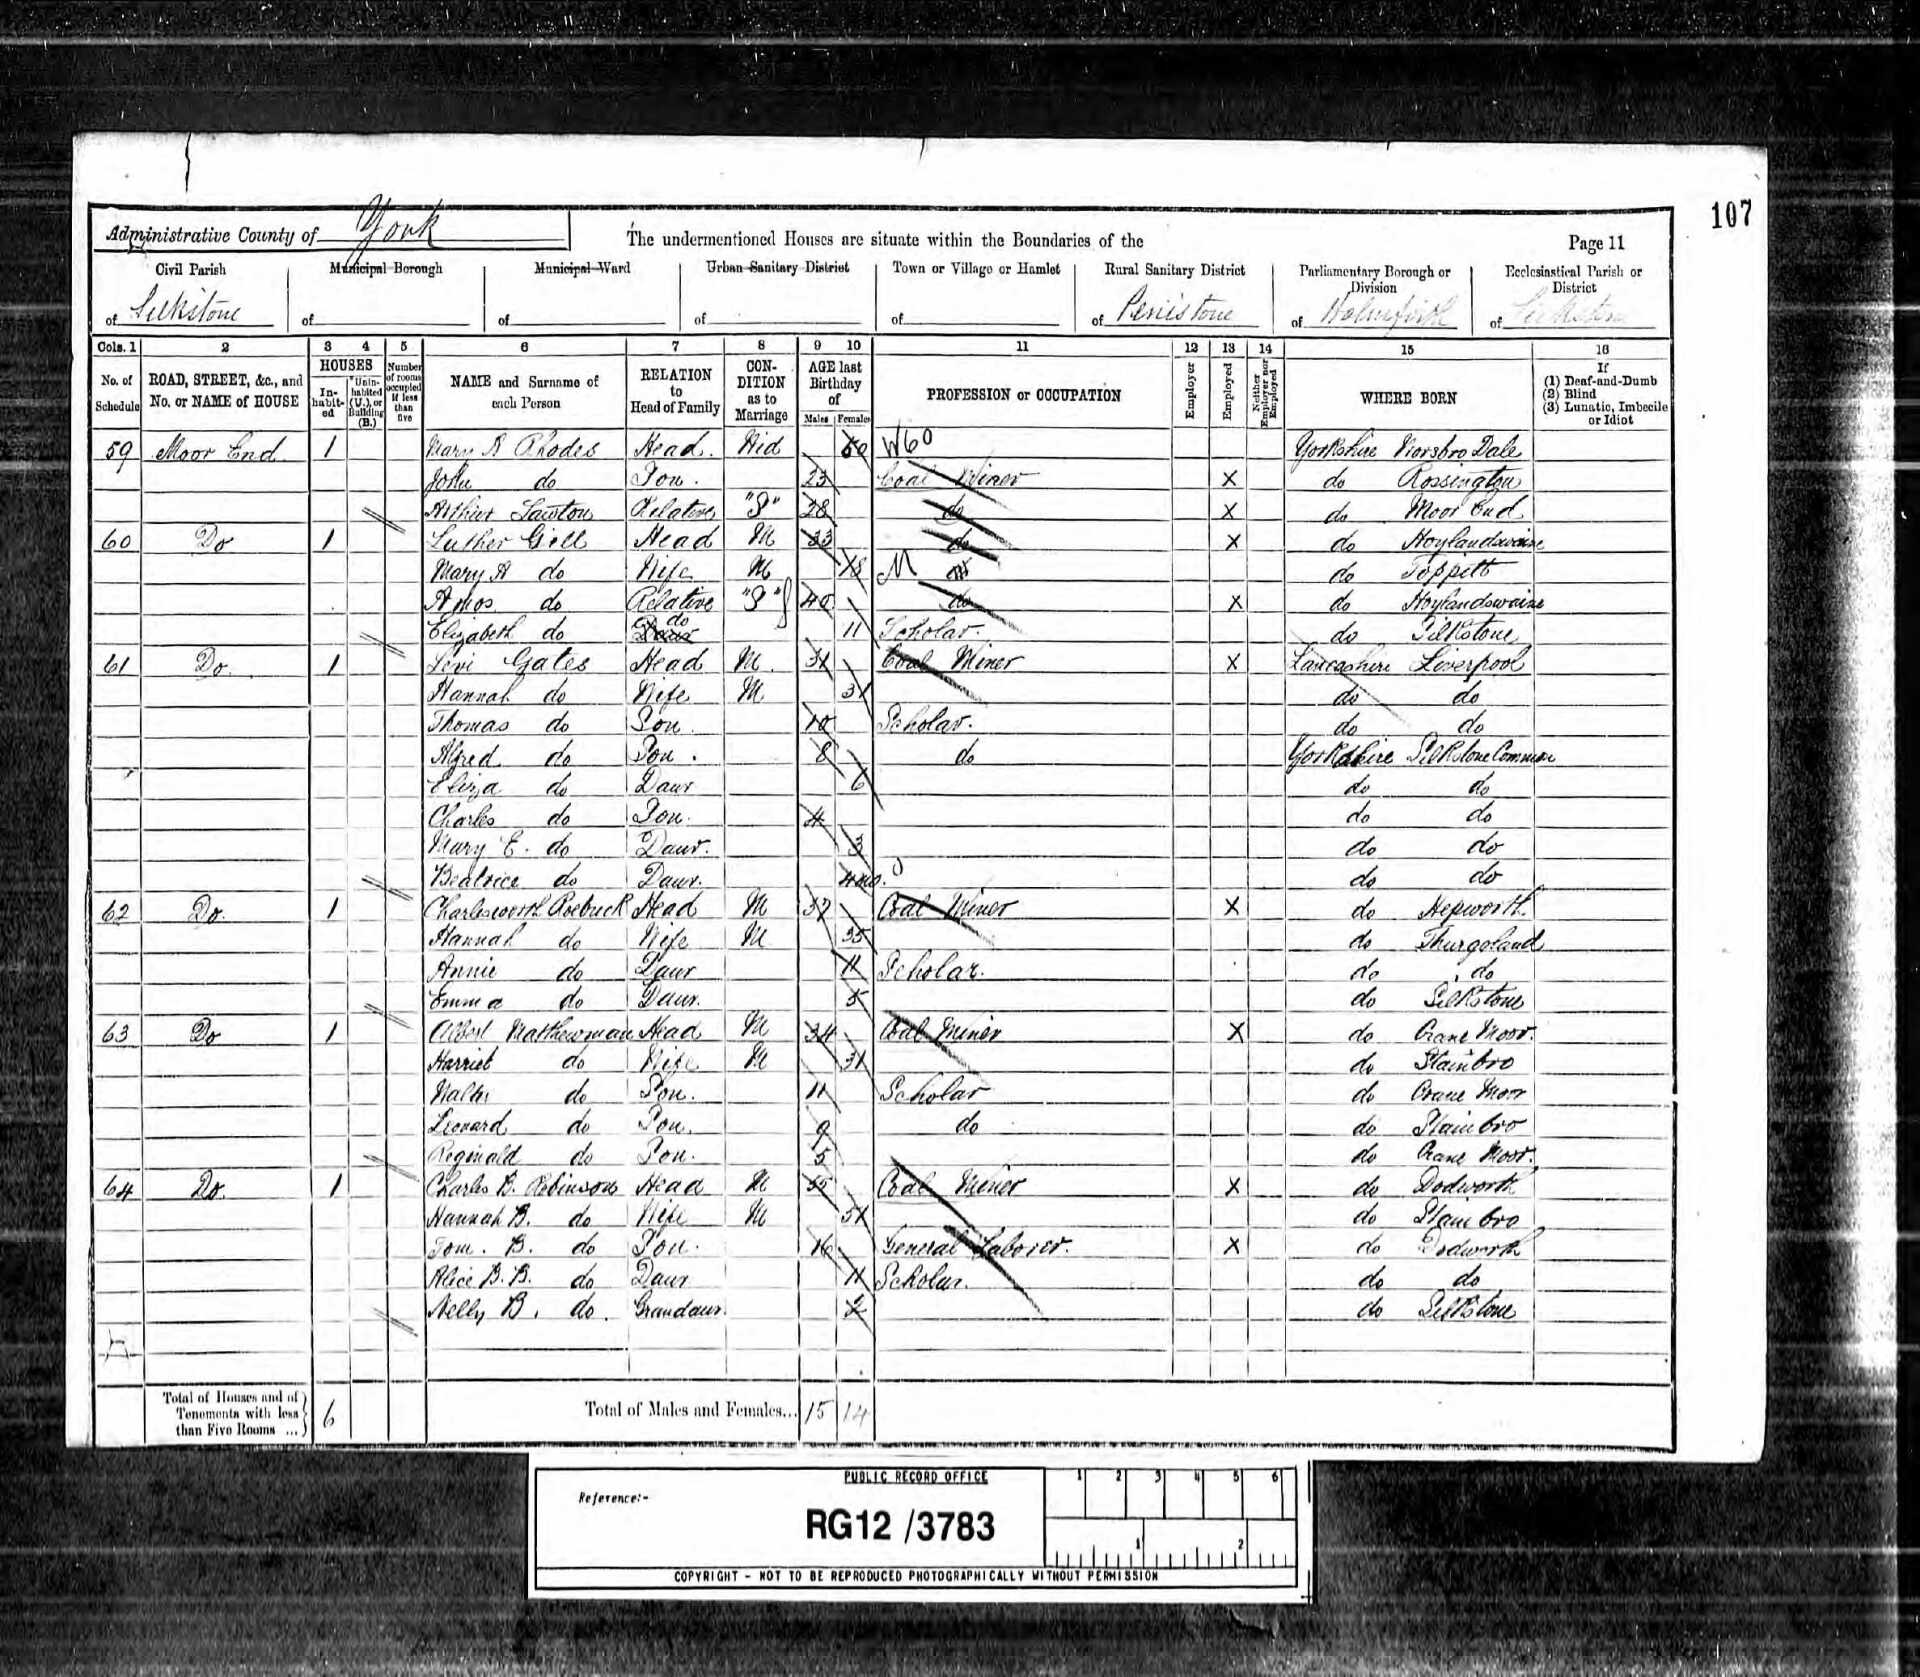 107
Administrative County of York The undermentioned Houses are situate within the Boundaries of the Page 11
Civil Parish Municipal Borough Municipal Ward Urban Sanitary District Town or Village or Hamlet Rural Sanitary District Parliamentary Borough or Division Ecclesiastical Parish or District
of Silkstone of of of of of Penistone of Holmfirth of Silkstone
Cols. 1 2 3 4 5 6 7 8 9 10 11 12 13 14 15 16
No. of Schedule ROAD, STREET, &c., and No. or NAME of HOUSE HOUSES Inhabited Uninhabited (U.), or Building (B.) Number of rooms occupied if less than five NAME and Surname of each Person RELATION to Head of Family CONDITION as to Marriage AGE last Birthday of Males Females PROFESSION or OCCUPATION Employer Employed Neither Employer nor Employed WHERE BORN If (1) Deaf-and-Dumb (2) Blind (3) Lunatic, Imbecile or Idiot
59 Moor End 1 Mary A Rhodes Head. Wid 60 W60 Yorkshire Worsbro Dale
John do Son. 23 Coal Miner X do Rossington
Arthur Lawton Relative "S" 28 do X do Moor End
60 Do 1 Luther Gill Head M 33 do X do Hoylandswaine
Mary A do Wife M M do
Amos do Relative "S" 40 do X do Hoylandswaine
Elizabeth do do 11 Scholar. do Silkstone
61 Do. 1 Levi Gates Head M. 31 Coal Miner X Lancashire Liverpool
Hannah do Wife M 31 do do
Thomas do Son. 10 Scholar. do do
Alfred do Son. 8 do Yorkshire Silkstone Common
Eliza do Daur 6 do do
Charles do Son. 4 do do
Mary E. do Daur. 3 do do
Beatrice do Daur. 4mo. do do
62 Do. 1 Charlesworth Roebuck Head M 37 Coal Miner X do Hepworth
Hannah do Wife M 35 do Thurgoland
Annie do Daur 11 Scholar. do do
Emma do Daur. 5 do Silkstone
63 Do 1 Albert Matthewman Head M 34 Coal Miner X do Crane Moor.
Harriet do Wife M 31 do Stainbro
Walter do Son. 11 Scholar do Crane Moor
Leonard do Son. 9 do do Stainbro
Reginald do Son. 5 do Crane Moor.
64 Do. 1 Charles B. Robinson Head M 55 Coal Miner X do Dodworth
Hannah B. do Wife M 51 do Stainbro
Tom. B. do Son. 16 General Laborer. X do Dodworth
Alice B. B. do Daur 11 Scholar. do do
Nelly B. do. Grandaur. 2 do Silkstone
Total of Houses and of Tenements with less than Five Rooms ... 6 Total of Males and Females... 15 14
PUBLIC RECORD OFFICE
Reference:-
RG12 /3783
1 2 3 4 5 6
1 2
COPYRIGHT - NOT TO BE REPRODUCED PHOTOGRAPHICALLY WITHOUT PERMISSION